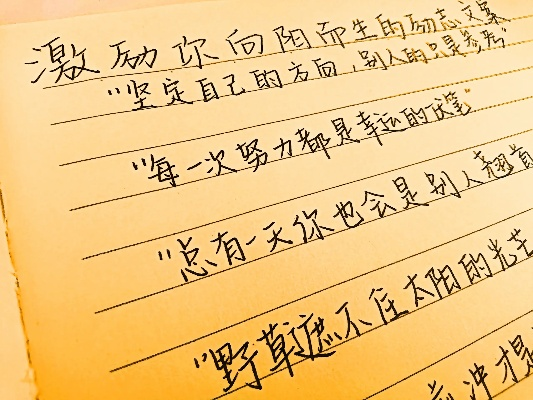 激励你向阳而生的励志文案
“坚定自己的方向，别人的只是参考”
“每一次努力都是幸运的伏笔”
“总有一天你也会是别人翘首
“野草遮不住太阳的光芒
前冲才是